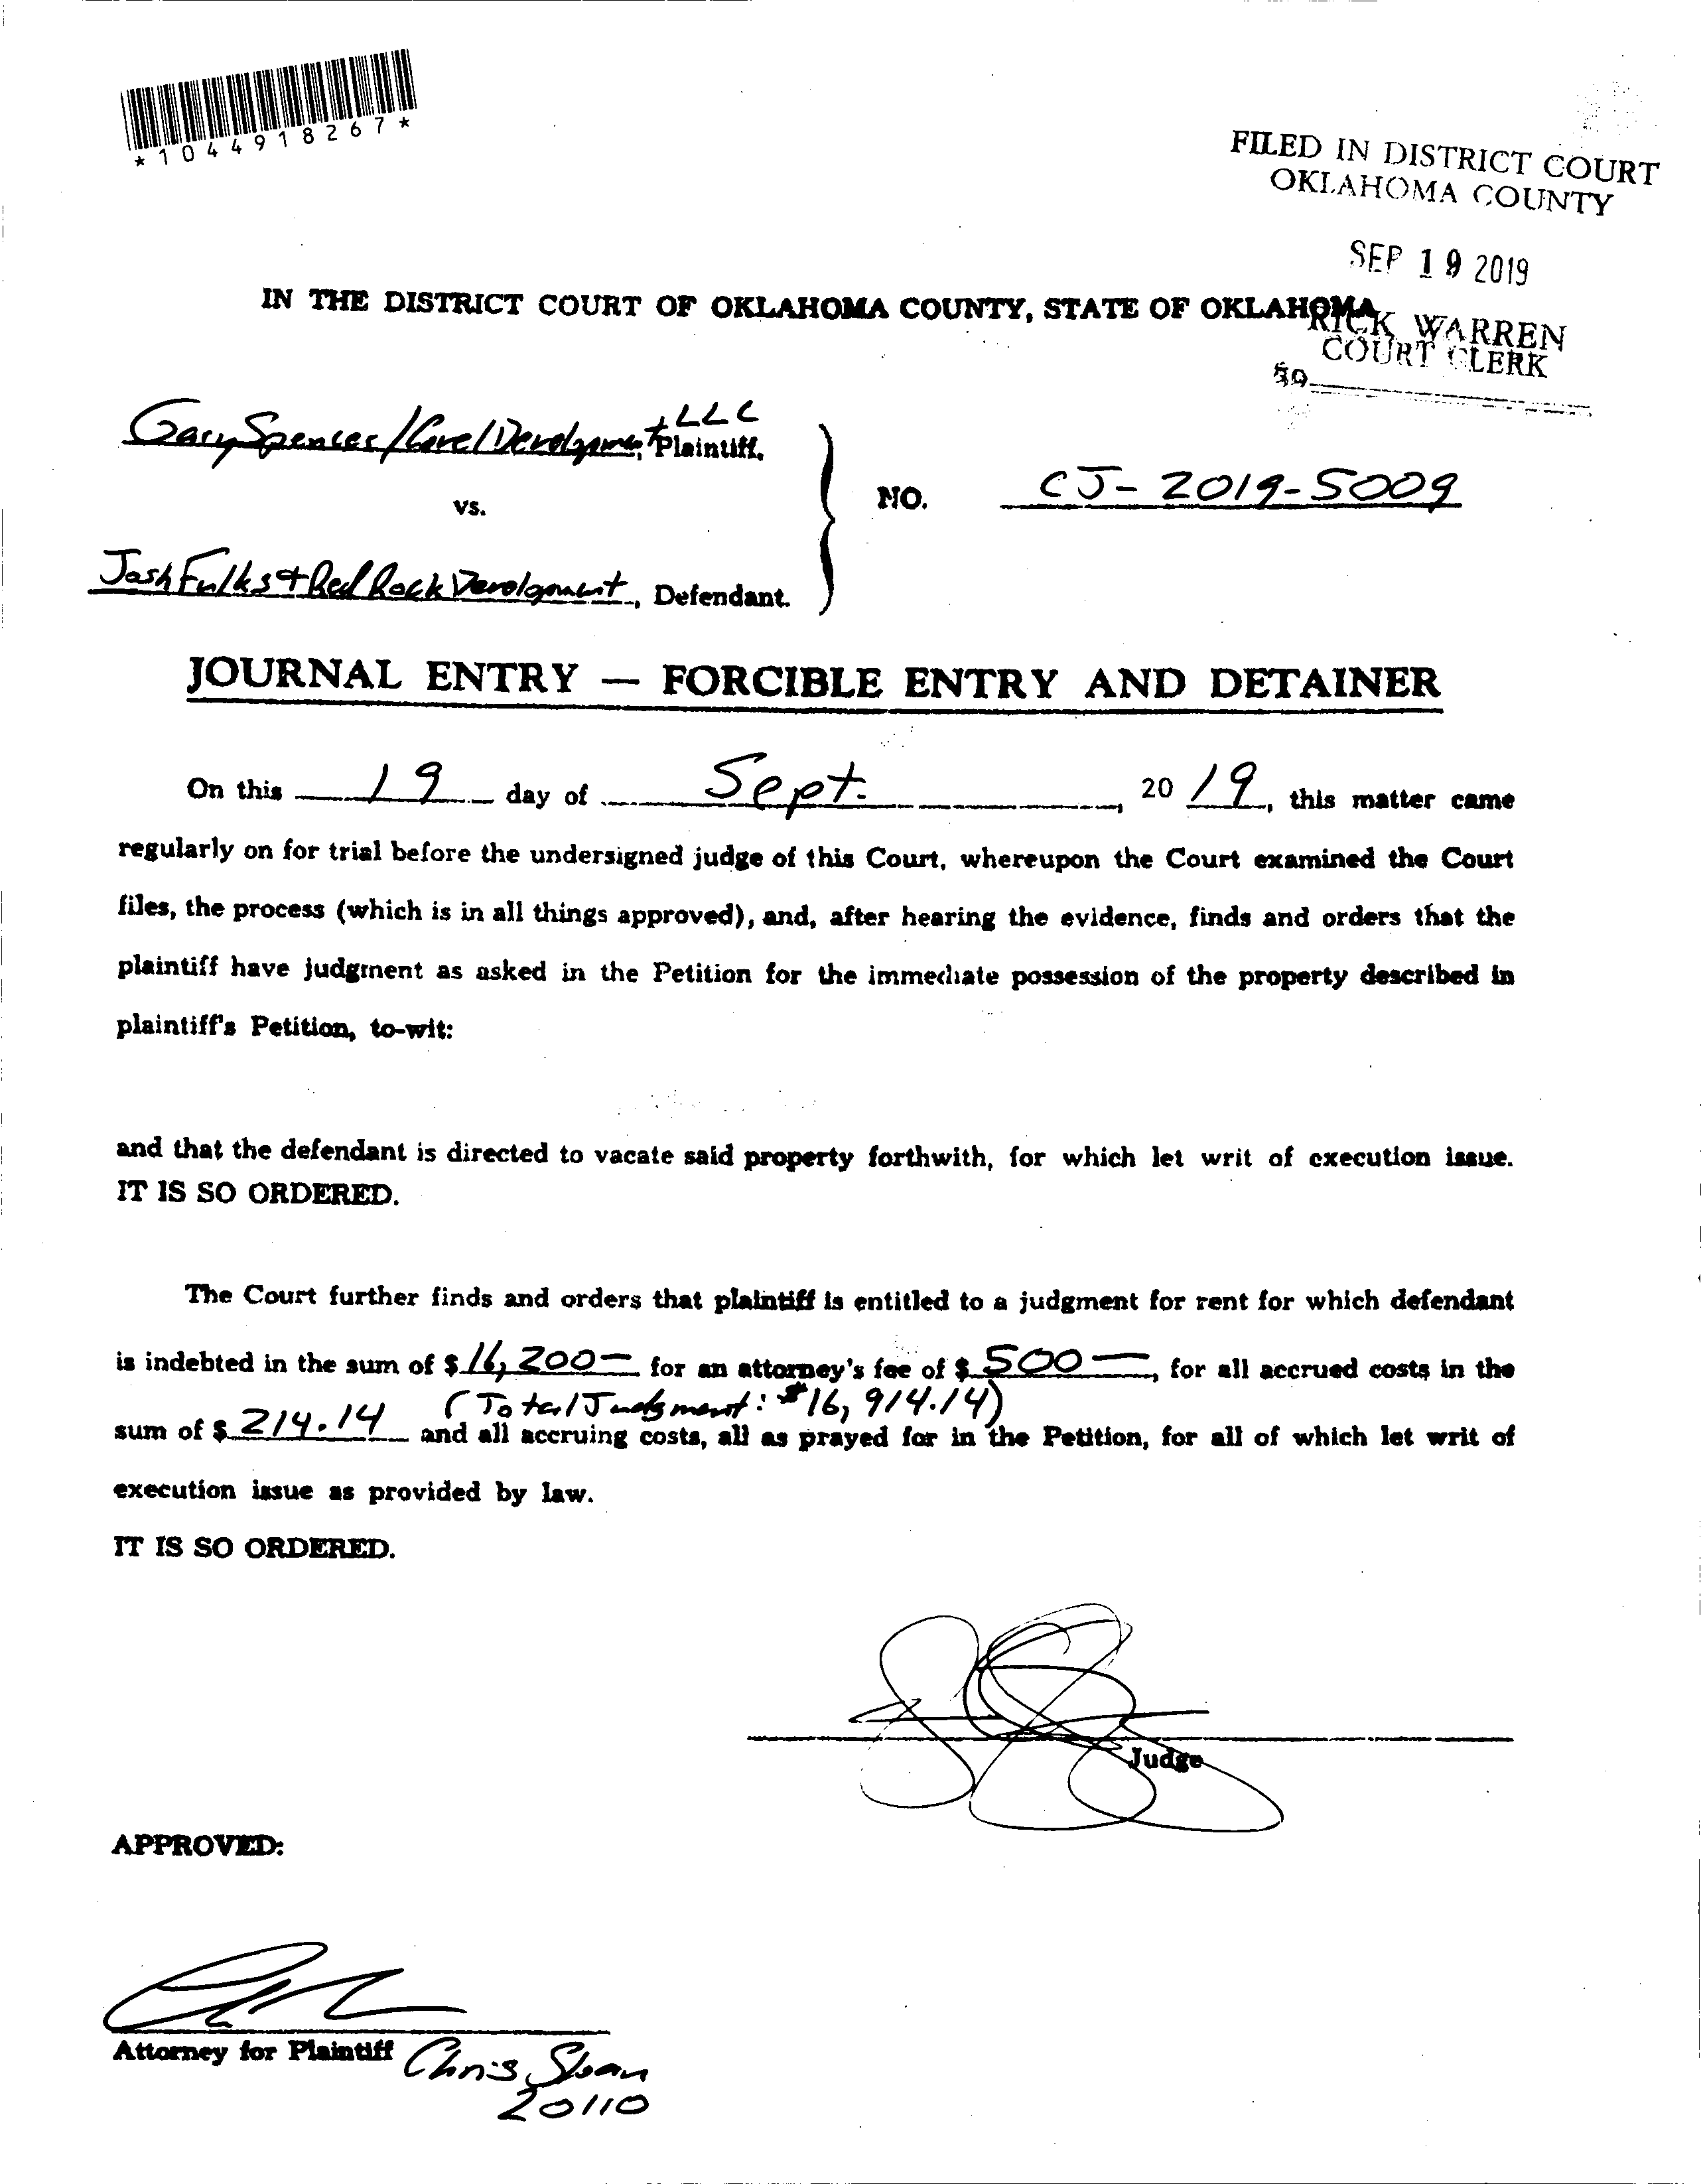 *1044918267*
FILED IN DISTRICT COURT
OKLAHOMA COUNTY
SEP 19 2019
IN THE DISTRICT COURT OF OKLAHOMA COUNTY, STATE OF OKLAHOMA
RICK WARREN
COURT CLERK
Gary Spencer / Development LLC
Plaintiff,
vs.
NO. CJ-2019-5009
Josh Fulks & Red Rock Development, Defendant.
JOURNAL ENTRY — FORCIBLE ENTRY AND DETAINER
On this 19 day of Sept. , 20 19, this matter came
regularly on for trial before the undersigned judge of this Court, whereupon the Court examined the Court
files, the process (which is in all things approved), and, after hearing the evidence, finds and orders that the
plaintiff have judgment as asked in the Petition for the immediate possession of the property described in
plaintiff's Petition, to-wit:
and that the defendant is directed to vacate said property forthwith, for which let writ of execution issue.
IT IS SO ORDERED.
The Court further finds and orders that plaintiff is entitled to a judgment for rent for which defendant
is indebted in the sum of $ 16,200— for an attorney's fee of $ 500—, for all accrued costs in the
(Total Judgment: $16,914.14)
sum of $ 214.14 and all accruing costs, all as prayed for in the Petition, for all of which let writ of
execution issue as provided by law.
IT IS SO ORDERED.
Judge
APPROVED:
Attorney for Plaintiff Chris Sloan
20110